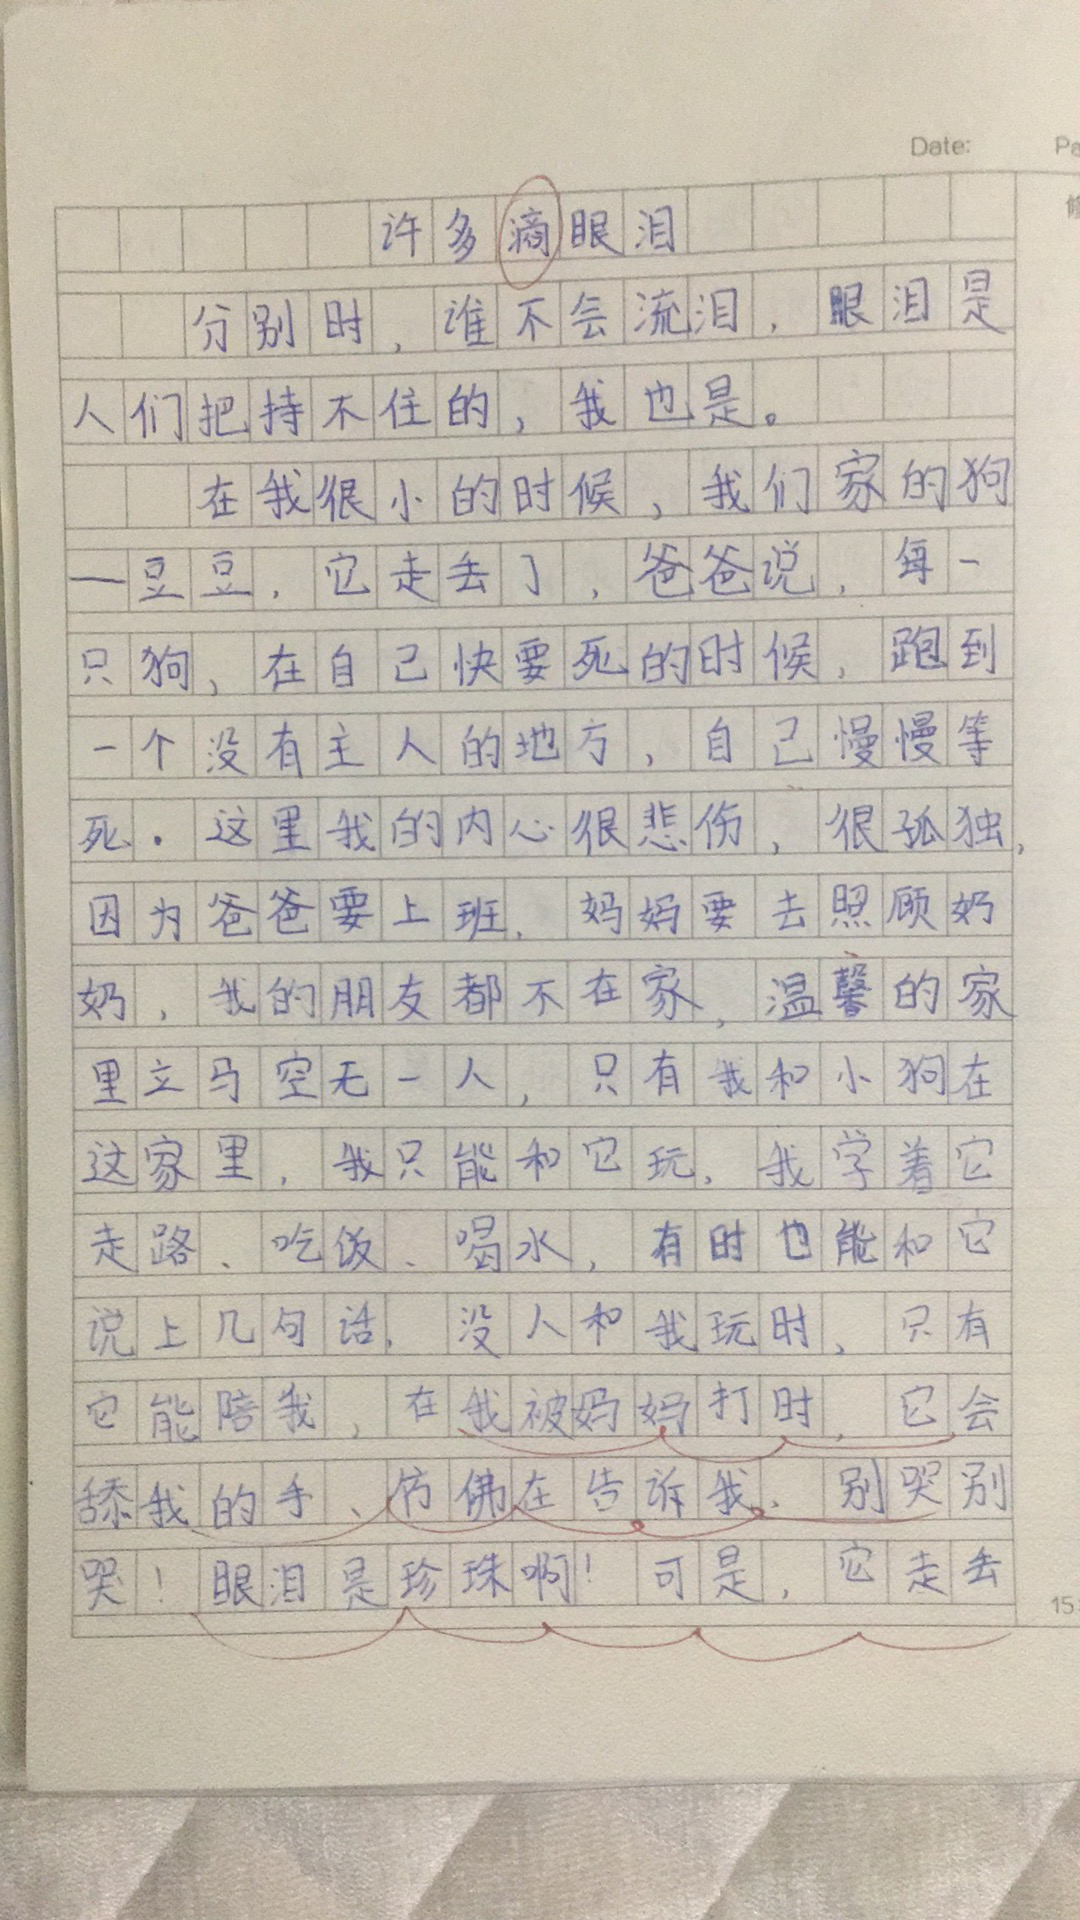 Date:
Pa
许多滴眼泪
分别时，谁不会流泪，眼泪是
人们把持不住的，我也是。
在我很小的时候，我们家的狗
一豆豆，它走丢了，爸爸说，每一
只狗，在自己快要死的时候，跑到
一个没有主人的地方，自己慢慢等
死．这里我的内心很悲伤，很孤独，
因为爸爸要上班，妈妈要去照顾奶
奶，我的朋友都不在家，温馨的家
里立马空无一人，只有我和小狗在
这家里，我只能和它玩，我学着它
走路、吃饭、喝水，有时也能和它
说上几句话，没人和我玩时，只有
它能陪我，在我被妈妈打时，它会
舔我的手、仿佛在告诉我、别哭别
哭！眼泪是珍珠啊！可是，它走丢
15